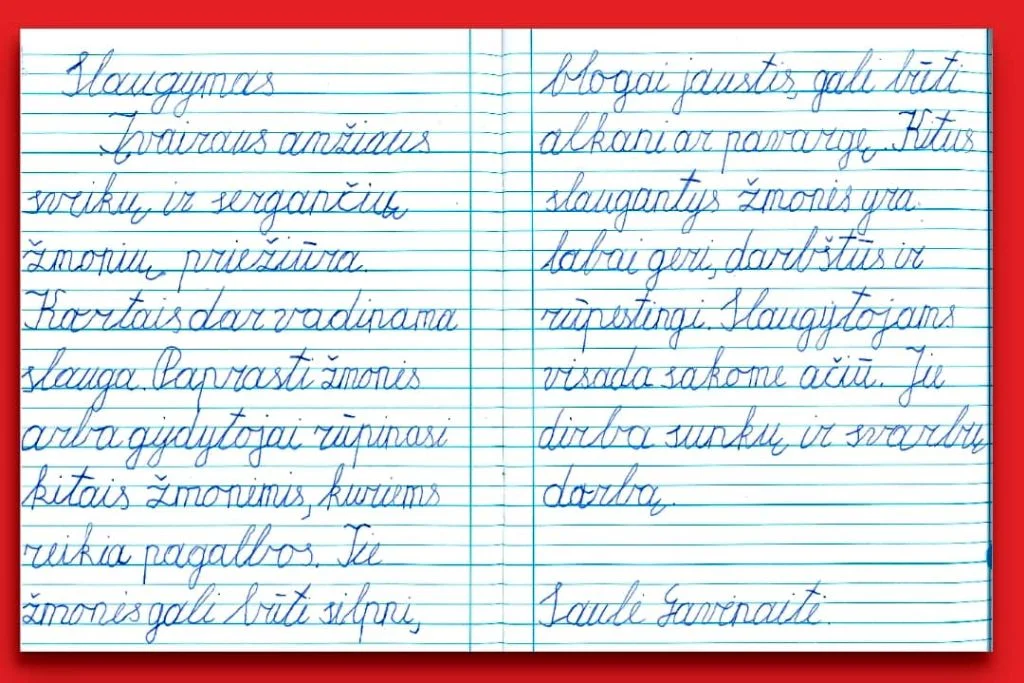 Slaugymas
Įvairaus amžiaus
sveikų ir sergančių
žmonių priežiūra.
Kartais dar vadinama
slauga. Paprasti žmonės
arba gydytojai rūpinasi
kitais žmonėmis, kuriems
reikia pagalbos. Tie
žmonės gali būti silpni,
blogai jaustis, gali būti
alkani ar pavargę. Kitus
slaugantys žmonės yra
labai geri, darbštūs ir
rūpestingi. Slaugytojams
visada sakome ačiū. Jie
dirba sunkų ir svarbų
darbą.
Saulė Gavėnaitė.